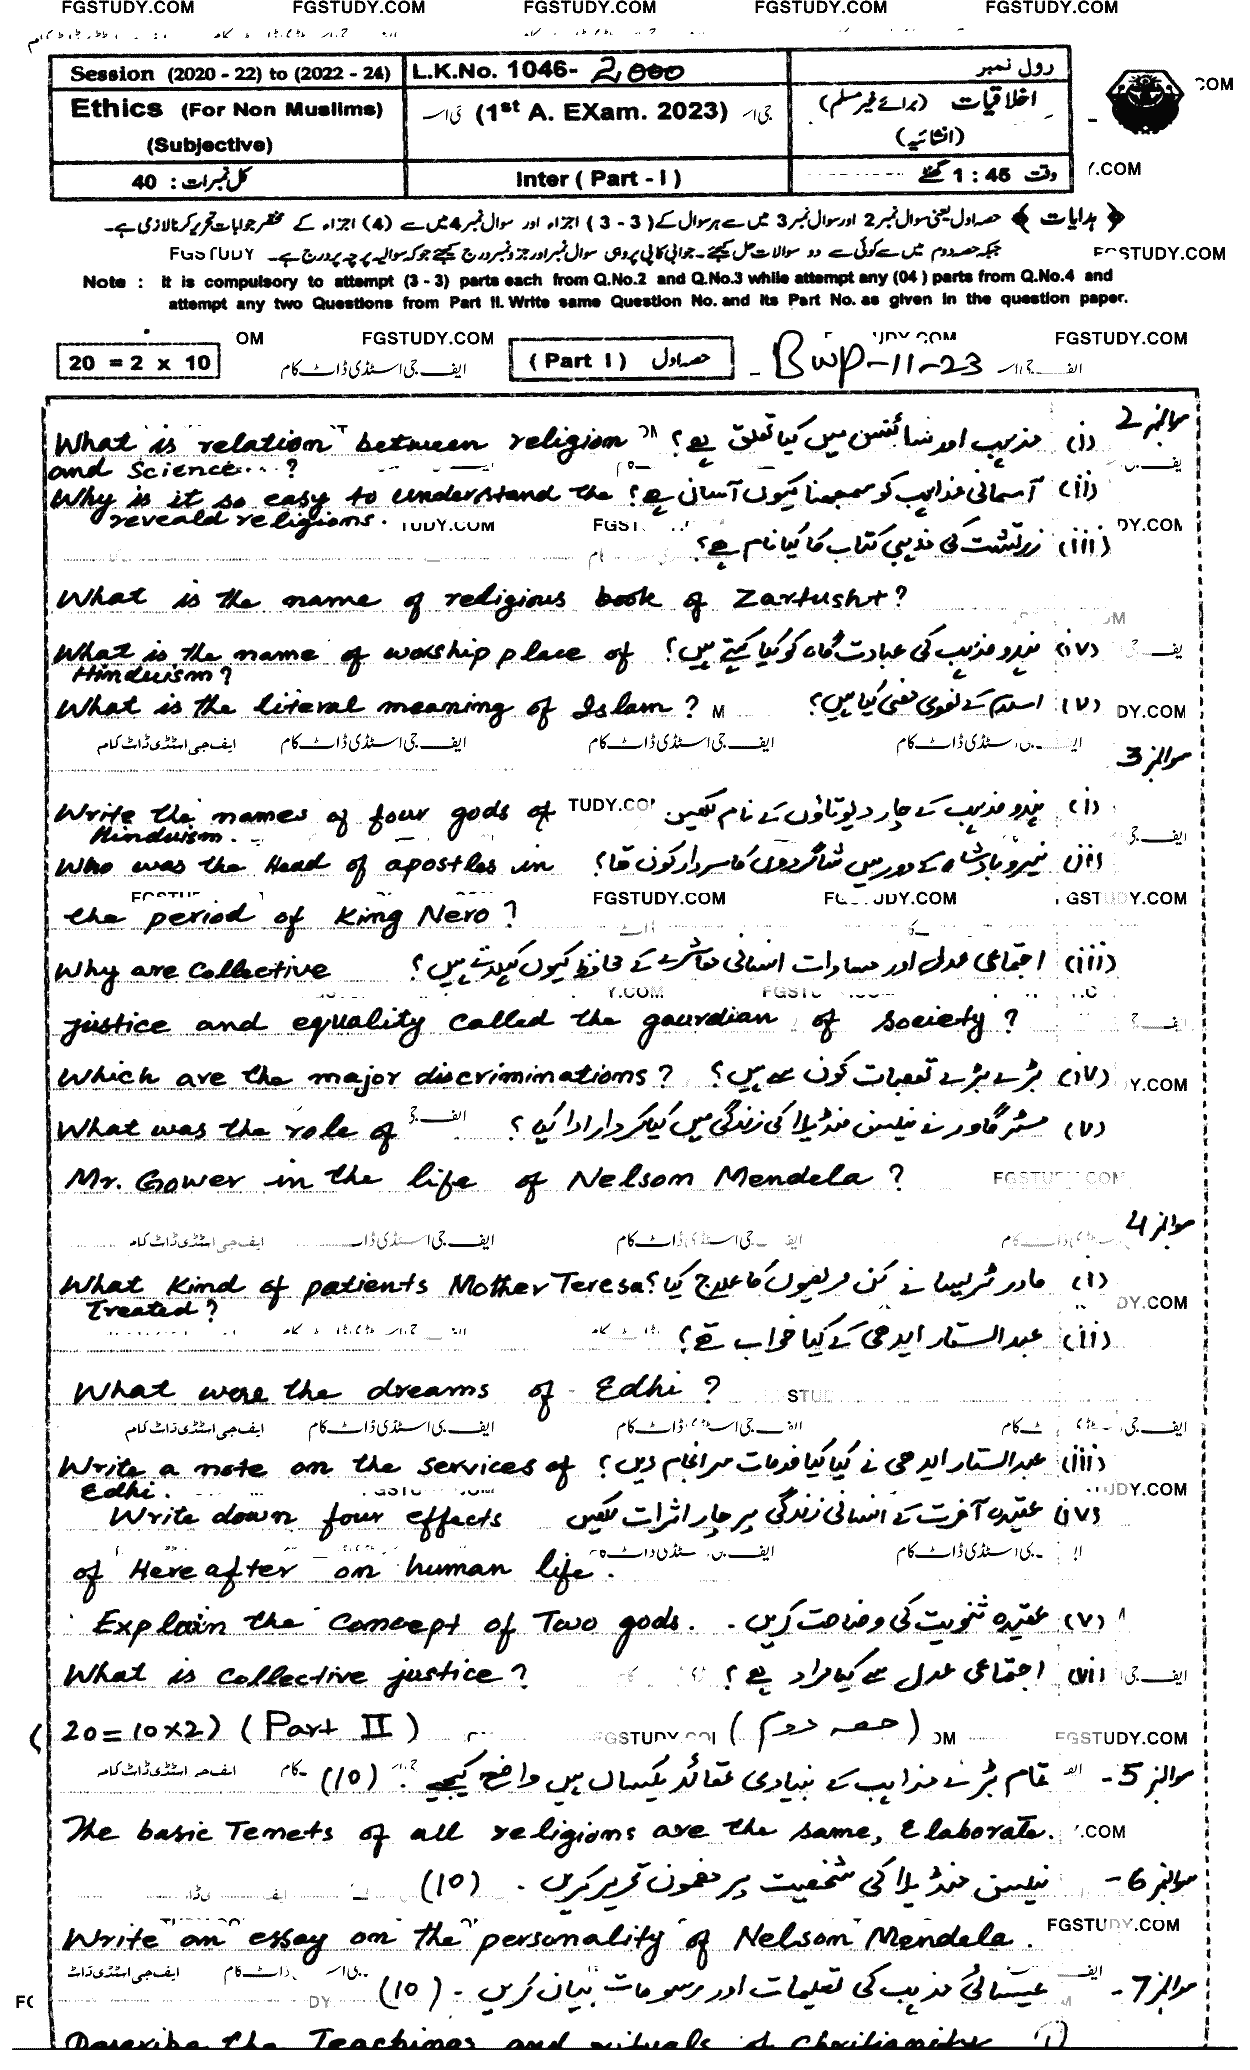 FGSTUDY.COM FGSTUDY.COM FGSTUDY.COM FGSTUDY.COM FGSTUDY.COM
Session (2020 - 22) to (2022 - 24) L.K.No. 1046- 2,000 رول نمبر
Ethics (For Non Muslims) (1st A. EXam. 2023) اخلاقیات (برائے غیر مسلم)
(Subjective) (انشائیہ)
کل نمبرات : 40 Inter ( Part - I ) وقت 1 : 45 گھنٹے
﴿ ہدایات ﴾ حصہ اول یعنی سوال نمبر 2 اور سوال نمبر 3 میں سے ہر سوال کے ( 3 - 3 ) اجزاء اور سوال نمبر 4 میں سے (4) اجزاء کے مختصر جوابات تحریر کرنا لازمی ہے۔
جبکہ حصہ دوم میں سے کوئی سے دو سوالات حل کیجئے۔ جوابی کاپی پر وہی سوال نمبر اور جزو نمبر درج کیجئے جو کہ سوالیہ پرچہ پر درج ہے۔
Note : It is compulsory to attempt (3 - 3) parts each from Q.No.2 and Q.No.3 while attempt any (04 ) parts from Q.No.4 and
attempt any two Questions from Part II. Write same Question No. and its Part No. as given in the question paper.
OM FGSTUDY.COM FGSTUDY.COM
20 = 2 x 10 ایف جی اسٹڈی ڈاٹ کام (Part I ) حصہ اول BWP-11-23
سوال نمبر 2
(i) مذہب اور سائنس میں کیا تعلق ہے؟ What is relation between religion
and Science ?
(ii) آسمانی مذاہب کو سمجھنا کیوں آسان ہے؟ Why is it so easy to understand the
reveald religions.
(iii) زرتشت کی مذہبی کتاب کا کیا نام ہے؟
What is the name of religious book of Zartusht?
(iv) ہندو مذہب کی عبادت گاہ کو کیا کہتے ہیں؟ What is the name of worship place of
Hinduism?
(v) اسلام کے لغوی معنی کیا ہیں؟ What is the literal meaning of Islam ?
ایف جی اسٹڈی ڈاٹ کام ایف جی اسٹڈی ڈاٹ کام ایف جی اسٹڈی ڈاٹ کام
سوال نمبر 3
(i) ہندو مذہب کے چار دیوتاؤں کے نام لکھیں Write the names of four gods of
Hinduism.
(ii) نیرو بادشاہ کے دور میں شاگردوں کا سردار کون تھا؟ Who was the Head of apostles in
FGSTUDY.COM
the period of King Nero?
(iii) اجتماعی عدل اور مساوات انسانی معاشرے کے محافظ کیوں کہلاتے ہیں؟ Why are Collective
justice and equality called the gaurdian of society ?
(iv) بڑے بڑے تعصبات کون سے ہیں؟ Which are the major discriminations?
(v) مسٹر گاور نے نیلسن منڈیلا کی زندگی میں کیا کردار ادا کیا؟ What was the role of
Mr. Gower in the life of Nelson Mendela ?
سوال نمبر 4
(i) مادر ٹریسا نے کن مریضوں کا علاج کیا؟ What Kind of patients Mother Teresa
Treated?
(ii) عبدالستار ایدھی کے کیا خواب تھے؟
What were the dreams of Edhi ?
ایف جی اسٹڈی ڈاٹ کام ایف جی اسٹڈی ڈاٹ کام
(iii) عبدالستار ایدھی نے کیا کیا خدمات سرانجام دیں؟ Write a note on the services of
Edhi.
(iv) عقیدہ آخرت کے انسانی زندگی پر چار اثرات لکھیں Write down four effects
of Here after on human life.
(v) عقیدہ ثنویت کی وضاحت کریں۔ Explain the Concept of Two gods.
(vi) اجتماعی عدل سے کیا مراد ہے؟ What is Collective justice?
(20 = 10 x 2) (Part II) (حصہ دوم) FGSTUDY.COM
سوال نمبر 5- تمام بڑے مذاہب کے بنیادی عقائد یکساں ہیں واضح کیجیے۔ (10)
The basic Tenets of all religions are the same, Elaborate.
سوال نمبر 6- نیلسن منڈیلا کی شخصیت پر مضمون تحریر کریں۔ (10)
Write an essay on the personality of Nelson Mendela.
سوال نمبر 7- عیسائی مذہب کی تعلیمات اور رسومات بیان کریں۔ (10)
Describe the Teachings and rituals of Christianity